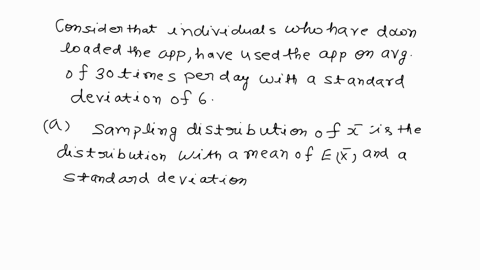 Consider that individuals who have down
loaded the app, have used the app on avg.
of 30 times per day with a standard
deviation of 6.
(a) Sampling distribution of x̄ is the
distribution with a mean of E(x̄) and a
standard deviation